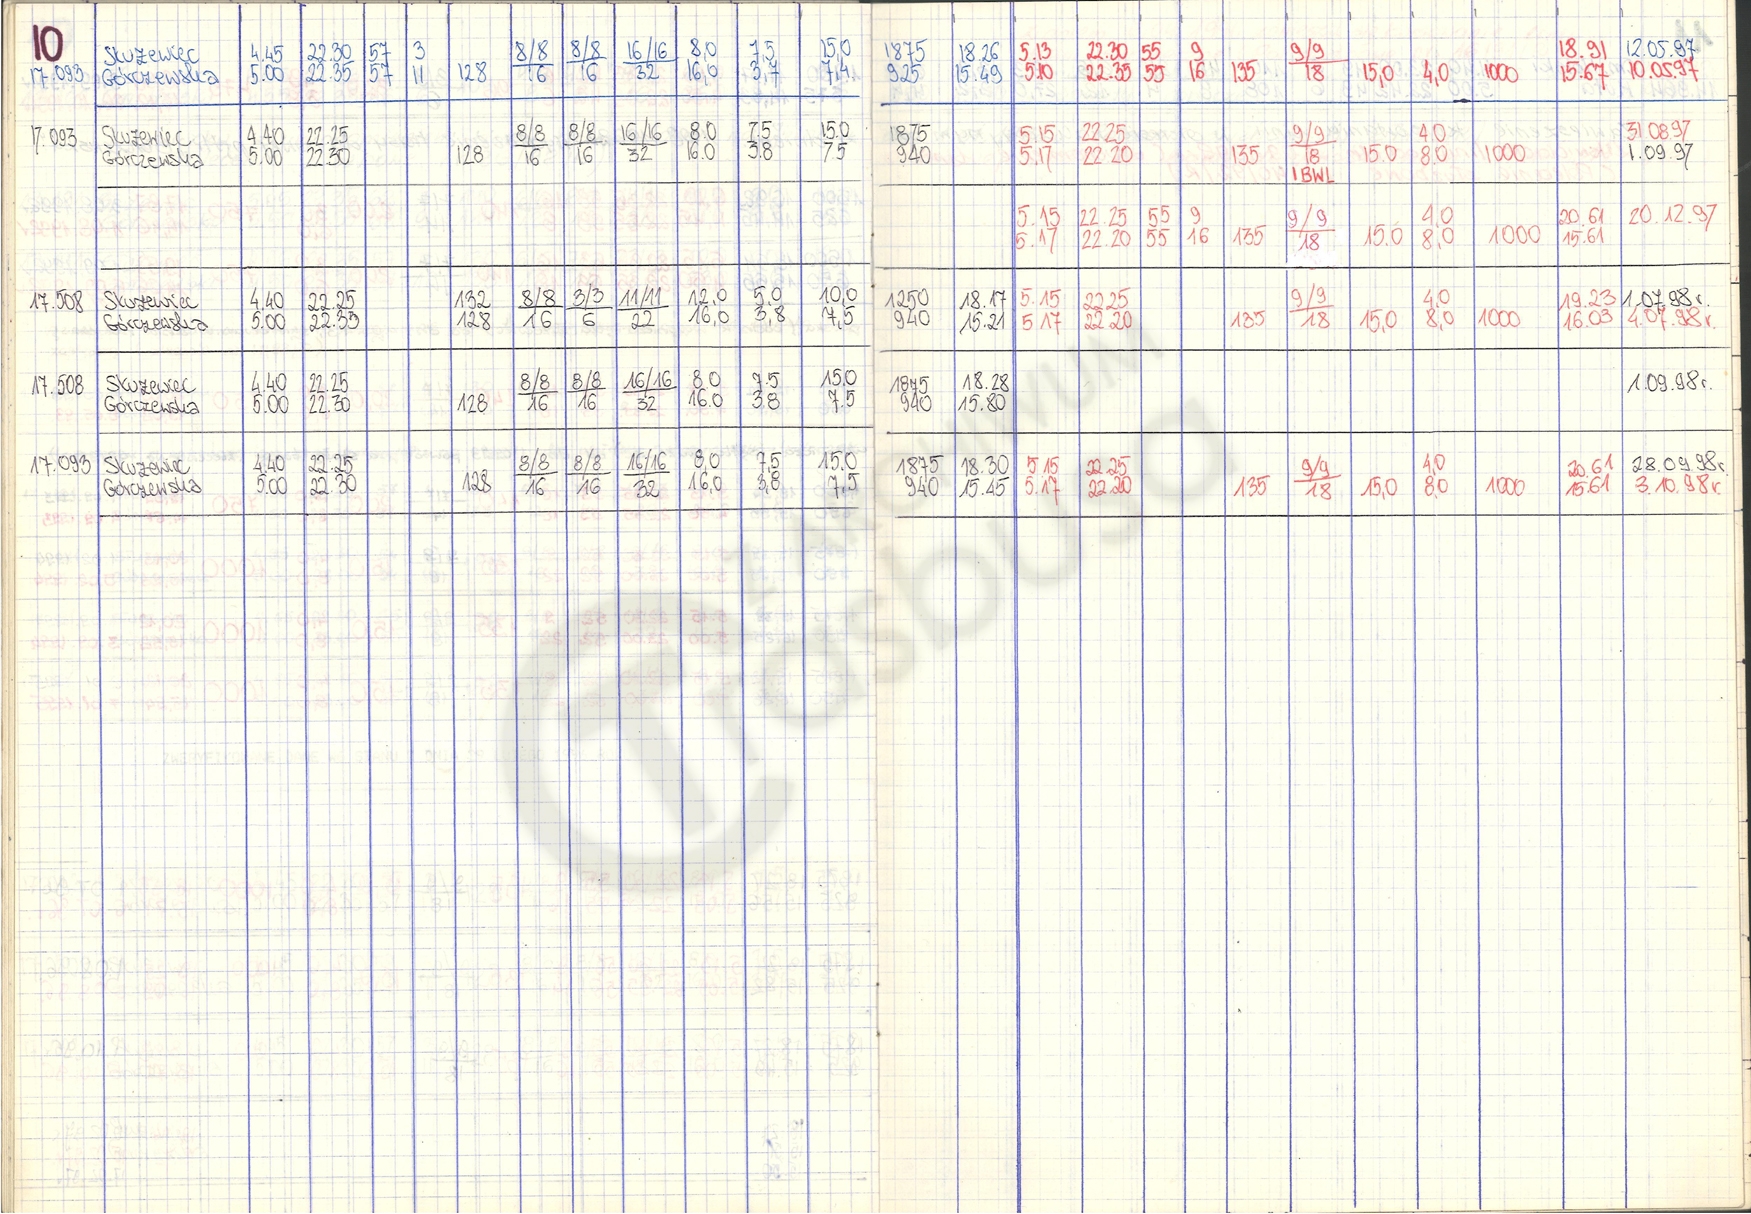 10
Służewiec 4.45 22.30 57 3 8/8 8/8 16/16 8,0 7,5 15,0 1875 18.26 5.13 22.30 55 9 9/9 18.91 12.05.97
17.093 Górczewska 5.00 22.35 57 11 128 16 16 32 16,0 3,7 7,4 925 15.49 5.10 22.35 55 16 135 18 15,0 4,0 1000 15.67 10.05.97
17.093 Służewiec 4.40 22.25 8/8 8/8 16/16 8.0 7.5 15.0 1875 5.15 22.25 9/9 4.0 31 08.97
Górczewska 5.00 22.30 128 16 16 32 16.0 3.8 7.5 940 5.17 22.20 135 18 15.0 8.0 1000 1.09.97
1BWL
5.15 22.25 55 9 9/9 4.0 20.61 20.12.97
5.17 22.20 55 16 135 18 15.0 8,0 1000 15.61
17.508 Służewiec 4.40 22.25 132 8/8 3/3 11/11 12,0 5,0 10,0 1250 18.17 5.15 22.25 9/9 4,0 19.23 1.07.98r.
Górczewska 5.00 22.35 128 16 6 22 16,0 3,8 7,5 940 15.21 5.17 22.20 135 18 15,0 8,0 1000 16.03 4.07.98r.
17.508 Służewiec 4.40 22.25 8/8 8/8 16/16 8.0 7.5 15.0 1875 18.28 1.09.98r.
Górczewska 5.00 22.30 128 16 16 32 16.0 3.8 7.5 940 15.80
17.093 Służewiec 4.40 22.25 8/8 8/8 16/16 8,0 7,5 15,0 1875 18.30 5.15 22.25 9/9 4,0 20.61 28.09.98r.
Górczewska 5.00 22.30 128 16 16 32 16,0 3,8 7,5 940 15.45 5.17 22.20 135 18 15,0 8,0 1000 15.61 3.10.98r.
Z ARCHIWUM
Trasbusa